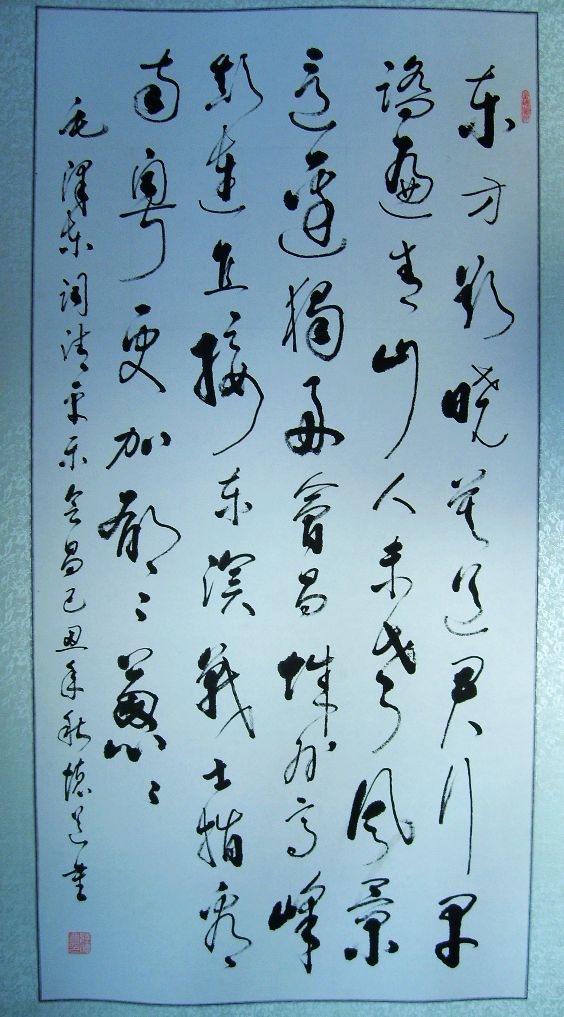 东方欲晓莫道君行早
踏遍青山人未老风景
這邊獨好會昌城外高峰
颠连直接东溟战士指看
南粤更加郁々葱々
毛泽东词清平乐会昌己丑年秋道书